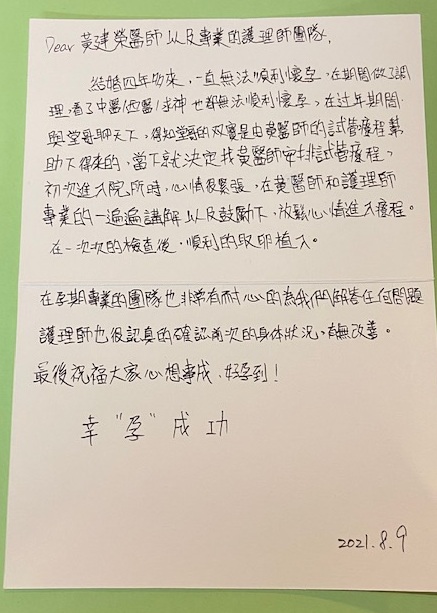 Dear 黃建榮醫師以及專業的護理師團隊,
結婚四年多來,一直無法順利懷孕,在期間做了調
理,看了中醫/西醫/求神也都無法順利懷孕,在过年期間
與堂哥聊天下,得知堂哥的双寶是由黃醫師的試管療程幫
助下得來的,當下就決定找黃醫師安排試管療程,
初次進入院所時,心情很緊張,在黃醫師和護理師
專業的一遍遍講解以及鼓勵下,放鬆心情進入療程。
在一次次的檢查後,順利的取卵植入。
在孕期專業的團隊也非常有耐心的為我們解答任何問題
護理師也很認真的確認前次的身体狀況,有無改善。
最後祝福大家心想事成,好孕到!
幸"孕"成功
2021.8.9